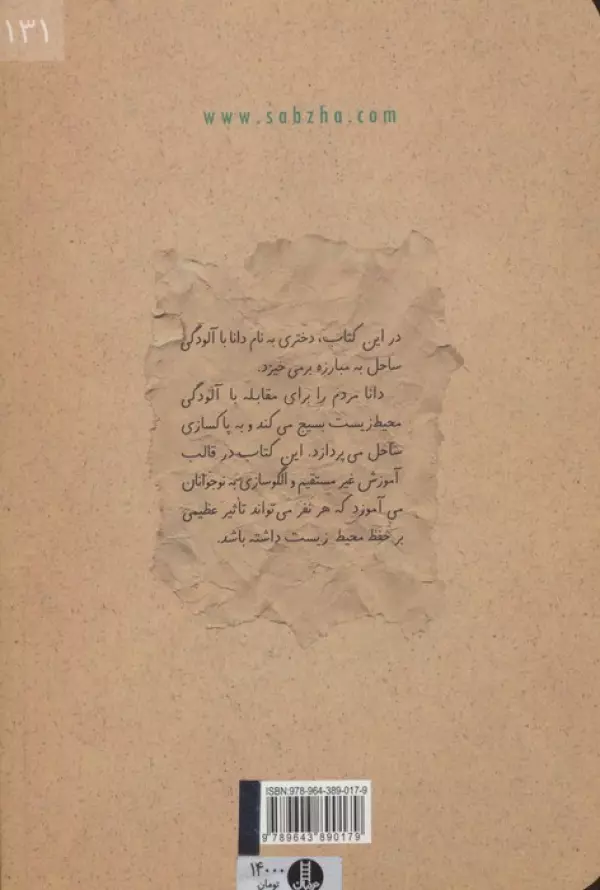 ۱۳۱
www.sabzha.com
در این کتاب، دختری به نام دانا با آلودگی
ساحل به مبارزه برمی خیزد.
دانا مردم را برای مقابله با آلودگی
محیط‌زیست بسیج می کند و به پاکسازی
ساحل می پردازد. این کتاب در قالب
آموزش غیر مستقیم و الگوسازی به نوجوانان
می آموزد که هر نفر می تواند تأثیر عظیمی
بر حفظ محیط زیست داشته باشد.
ISBN:978-964-389-017-9
9 789643 890179
۱۴۰۰۰
تومان